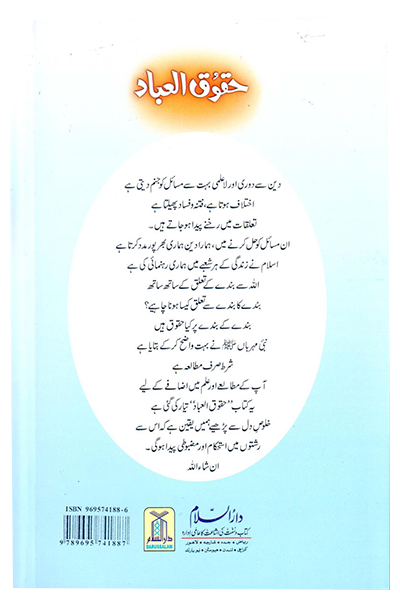 حقوق العباد
دین سے دوری اور لاعلمی بہت سے مسائل کو جنم دیتی ہے
اختلاف ہوتا ہے، فتنہ و فساد پھیلتا ہے
تعلقات میں رخنے پیدا ہو جاتے ہیں۔
ان مسائل کو حل کرنے میں، ہمارا دین ہماری بھرپور مدد کرتا ہے
اسلام نے زندگی کے ہر شعبے میں ہماری رہنمائی کی ہے
اللہ سے بندے کے تعلق کے ساتھ ساتھ
بندے کا بندے سے تعلق کیسا ہونا چاہیے؟
بندے کے بندے پر کیا حقوق ہیں
نبیٔ مہرباں ﷺ نے بہت واضح کر کے بتایا ہے
شرط صرف مطالعہ ہے
آپ کے مطالعے اور علم میں اضافے کے لیے
یہ کتاب ”حقوق العباد“ تیار کی گئی ہے
خلوصِ دل سے پڑھیے ہمیں یقین ہے کہ اس سے
رشتوں میں استحکام اور مضبوطی پیدا ہوگی۔
ان شاء اللہ
ISBN 969574188-6
9 789695 741887
دارالسلام
DARUSSALAM
دارالسلام
کتاب و سنت کی اشاعت کا عالمی ادارہ
ریاض • جدہ • شارجہ • لاہور
کراچی • لندن • ہیوسٹن • نیو یارک